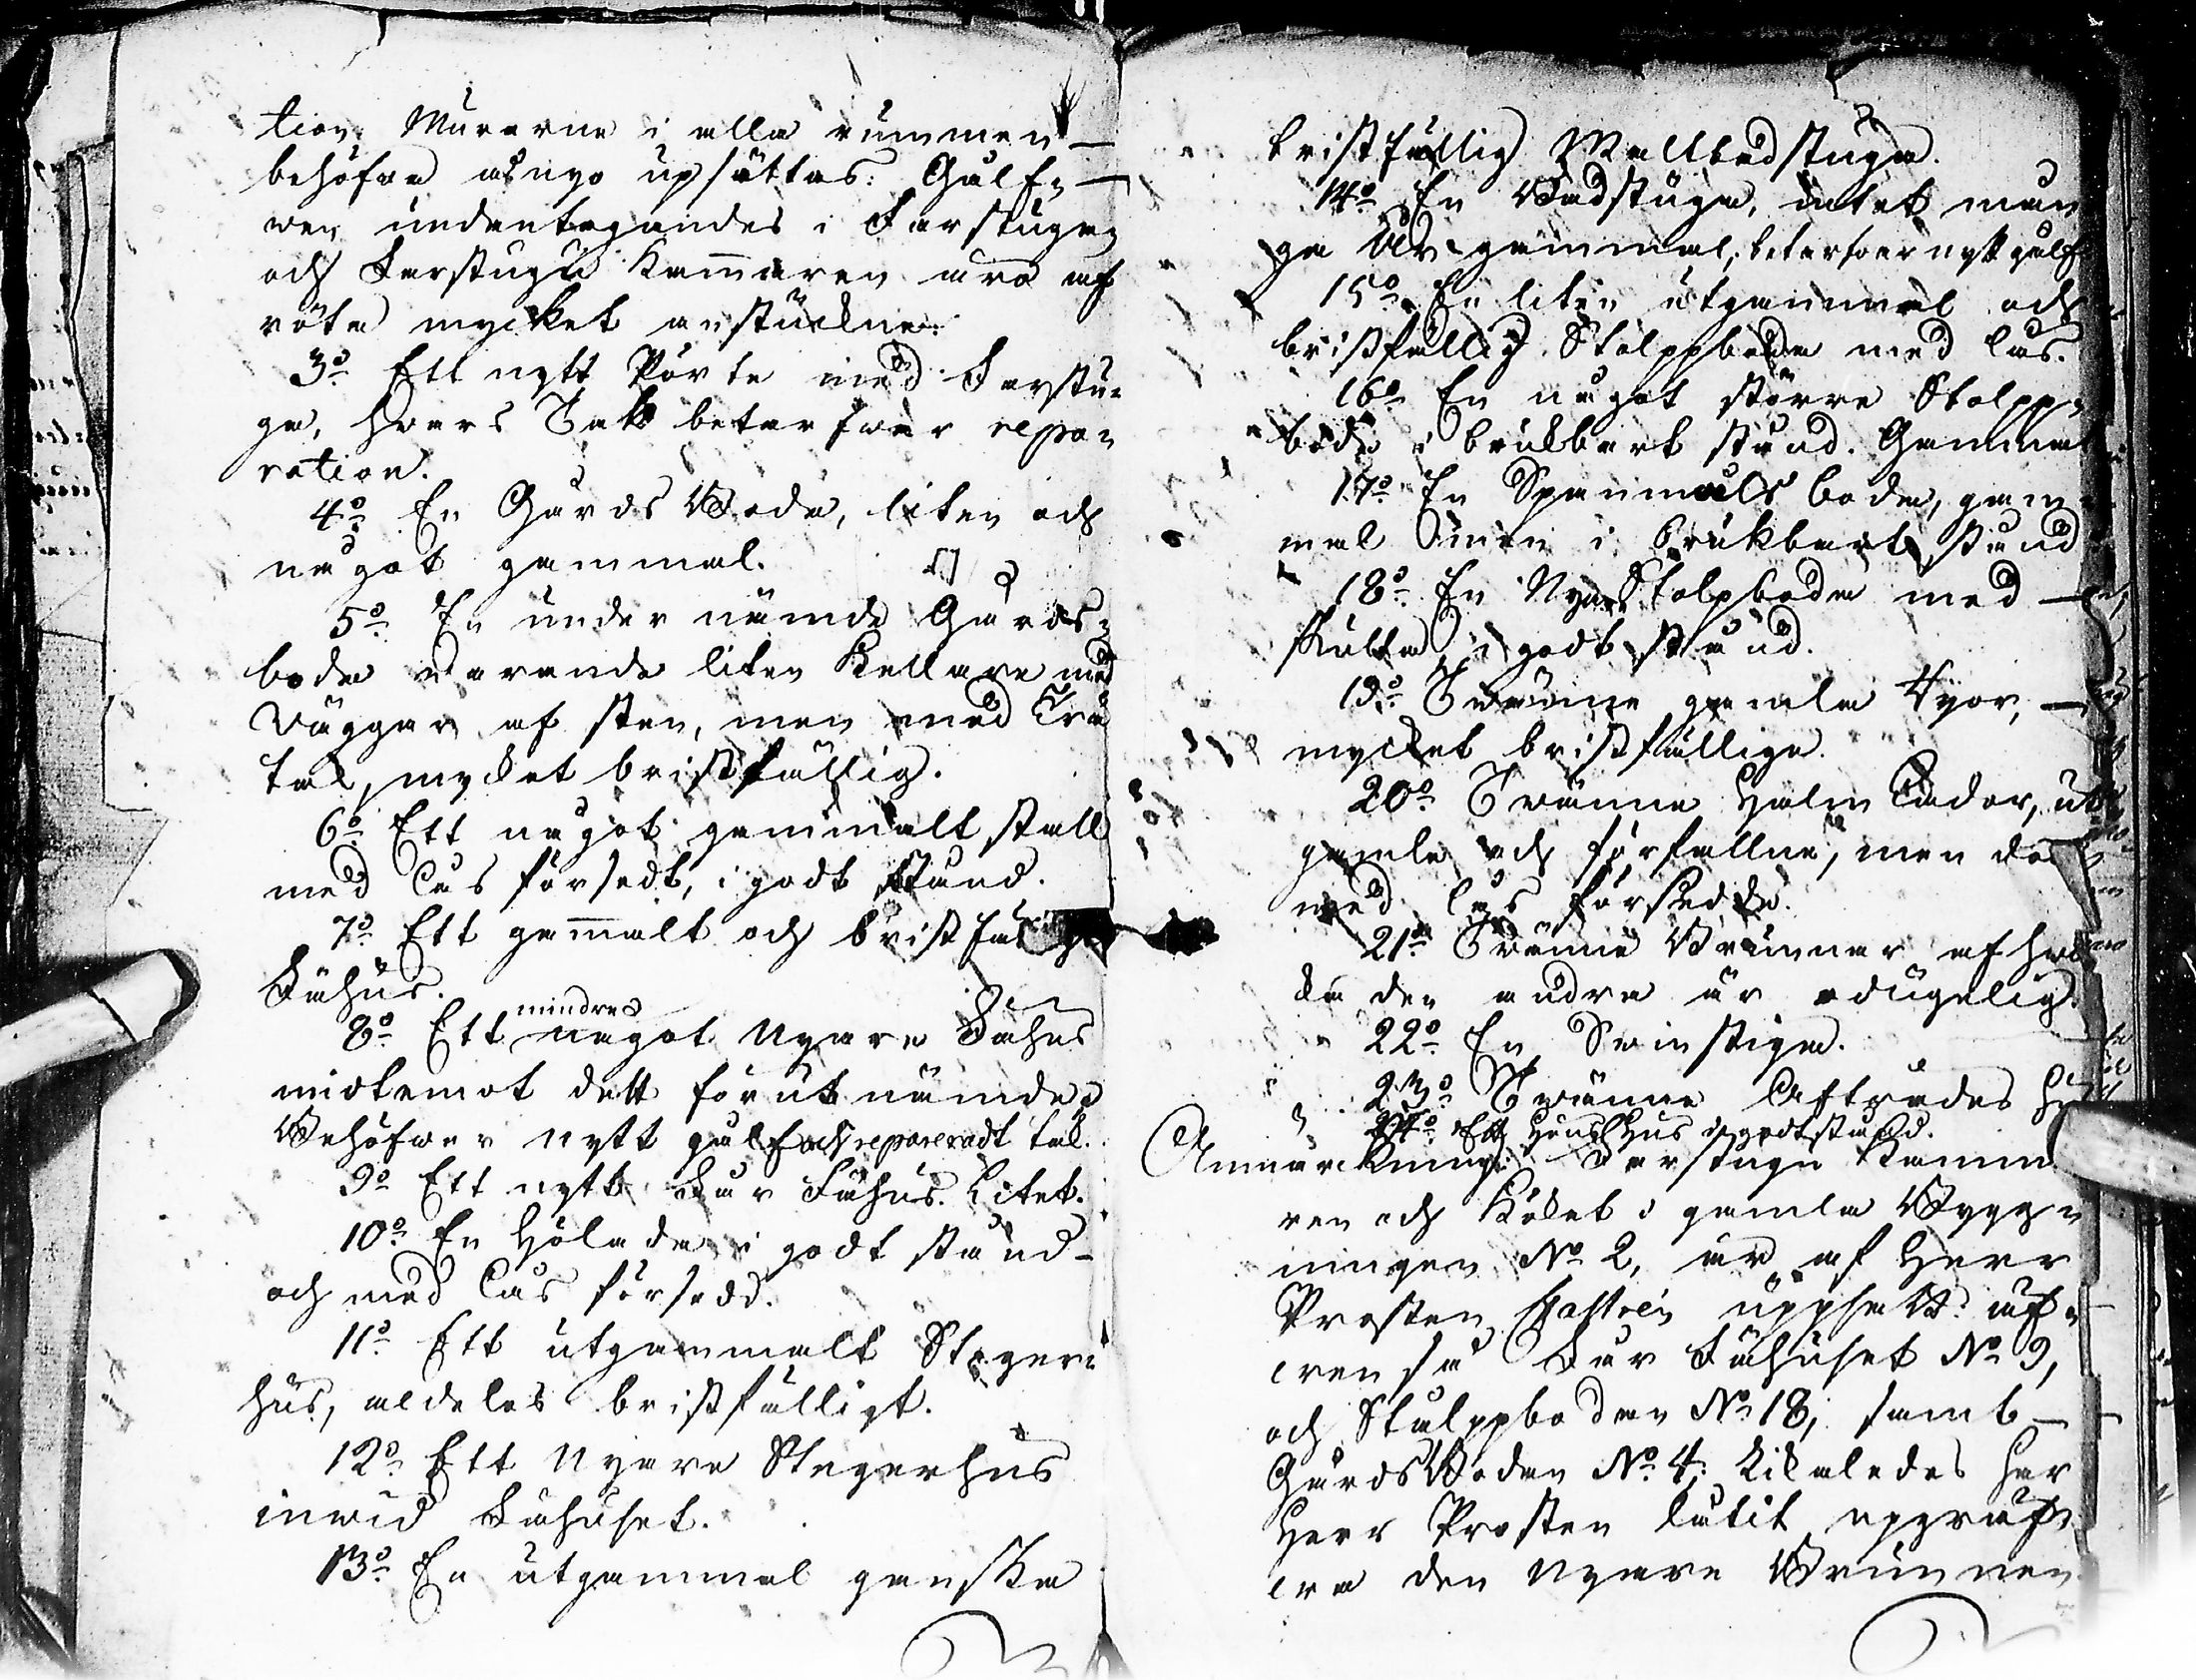 tion; Murarne i alla rummen —
behöfwa å nyo upsättas: Gulfs
wen undantagandes i Farstugan
och Farstugu Kam̄aren äro af
röta mycket anstuckne.
3:o Ett nytt Pörte med Farstu-
ga, hwars Tak betarfwar repa-
ration.
4:o En Gårds Boda, liten och
något gammal.
5:o En under nämde Gårds-
boda warande liten Kellare med
Väggar af sten, men med Trä
tak, mycket bristfällig.
6:o Ett något gammalt stall
med Lås försedt, i godt stånd.
7:o Ett gam̄alt och bristfälligt
Fähus.
mindre
8:o Ett något nyare Fähus
midtemot dett förutnämde
Behöfwer nytt gulf och repareradt tak.
9:o Ett nytt Får Fähus. Litet.
10:o En Hölada i godt stånd
och med Lås försedd.
11:o Ett utgammalt Steger-
hus, aldeles bristfälligt.
12:o Ett nyare Stegerhus
inwid Fähuset.
13:o En utgammal ganska
bristfällig Maltbadstuga.
14:o En Badstuga, intet mån-
ga År gammal, betarfwar nytt gulf
15:o En liten utgammal och
bristfällig Stolppboda med lås.
16:o En något större Stolpp-
boda i brukbart stånd. Gammal
17:o En Spanmåls boda, gam-
mal men i brukbart stånd
18:o En Ny Stolpboda med —
i godt stånd.
19:o Twänne gamla Ryor, —
mycket bristfällige.
20:o Twänne Halm Lador, ut-
gamle och förfallne, men doch
med lås försedde.
21:o Twänne Brunnar af hwil-
ka den andra är odugelig.
22:o En Swinstiga.
23:o Twänne Afträdes Hus
24:o Ett Höns Hus i godt stånd.
Anmärckning: Farstugu Kamma-
ren och Köket i gamla Bygg-
ningen N:o 2, är af Herr
Prosten Castrén uppsatt: äf-
wen så Får Fähuset N:o 9,
och Stolppboden N:o 18, samt —
Gårds Boden N:o 4: Likaledes har
Herr Prosten låtit uppgräf-
wa den nyare Brunnen